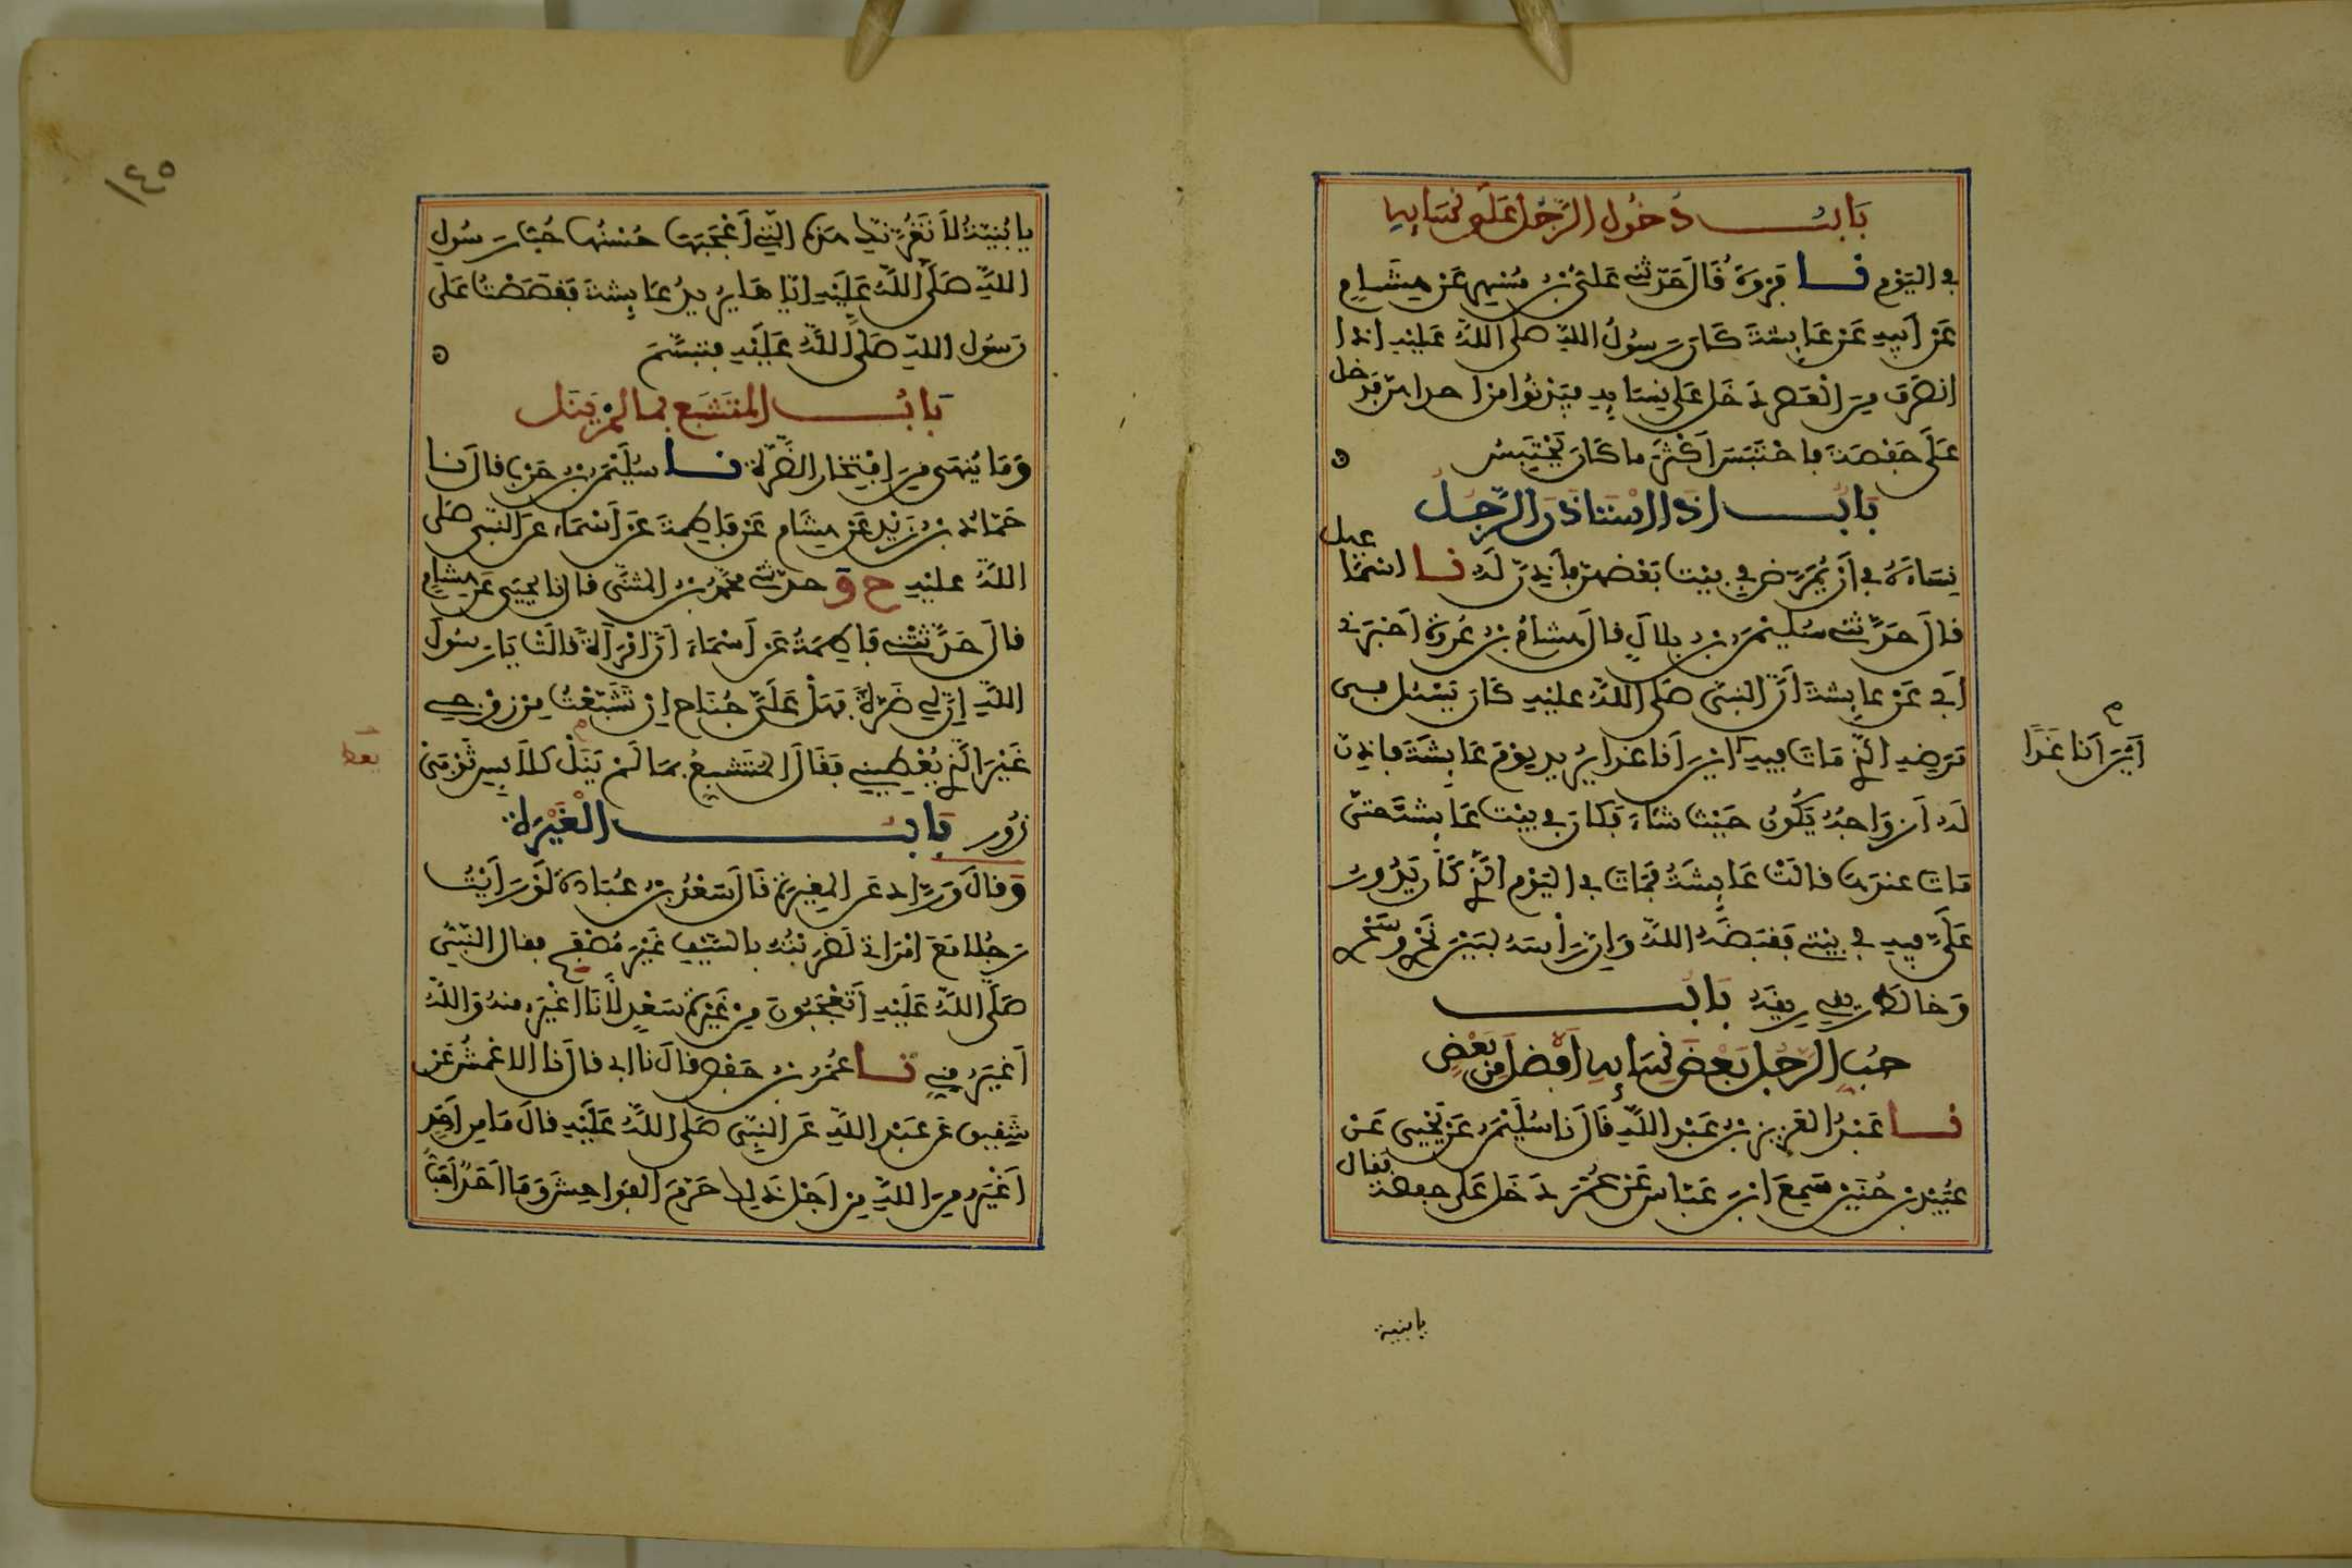 بَابُ دُخُولِ الرَّجُلِ عَلَى نِسَائِهِ
فِي الْيَوْمِ نا فَرْوَةُ قَالَ حَدَّثَنِي عَلِيُّ بْنُ مُسْهِرٍ عَنْ هِشَامٍ
عَنْ أَبِيهِ عَنْ عَائِشَةَ كَانَ رَسُولُ اللَّهِ صَلَّى اللَّهُ عَلَيْهِ إِذَا
انْصَرَفَ مِنَ الْعَصْرِ دَخَلَ عَلَى نِسَائِهِ فَيَدْنُوا مِنْ احداهن فَدَخل
عَلَى حَفْصَةَ فاحْتَبَسَ أَكْثَرَ ما كَانَ يَحْتَبِسُ
بَابُ إِذَا اسْتَأذَنَ الرَّجُلُ
نِسَاءَهُ فِي أَنْ يُمَرَّضَ فِي بَيْتِ بَعْضِهِنَّ فَأَذِنَّ لَهُ نا اسْمَاعيل
قالَ حَدَّثَنِي سُلَيْمَنُ بْنُ بِلالٍ قالَ هِشَامُ بْنُ عُرْوَةَ أَخْبَرَنِي
أَبِي عَنْ عَائِشَةَ أَنَّ النَّبِيَّ صَلَّى اللَّهُ عَلَيْهِ كَانَ يَسْئلُ في
مَرَضِهِ الَّذِي مَاتَ فِيهِ أَيْنَ أَنَا غدا يُرِيد يَوْمَ عَائِشَةَ فأذِنَ
أَيْنَ أَنا غَدًا
لَهُ أَزْوَاجُهُ يَكُونُ حَيْثُ شَاءَ فَكَانَ فِي بَيْتِ عَائِشَةَ حَتَّى
مَاتَ عِنْدَهَا قَالَتْ عَائِشَةُ فَمَاتَ فِي الْيَوْمِ الَّذِي كَانَ يَدُورُ
عَلَيَّ فِيهِ فِي بَيْتِي فَقَبَضَهُ اللَّهُ وَإِنَّ رَأْسَهُ لَبَيْنَ نَحْرِي وَسَحْرِي
وَخَالَطَ رِيقِي رِيقَهُ بَابُ
حُبِّ الرَّجُلِ بَعْضَ نِسَائِهِ أَفْضَلَ مِنْ بَعْضٍ
نا عَبْدُ الْعَزِيزِ بْنُ عَبْدِ اللَّهِ قَالَ نا سُلَيْمَنُ عَنْ يَحْيَى عَنْ
عُبَيْدِ بْنِ حُنَيْنٍ سَمِعَ ابْنَ عَبَّاسٍ عَنْ عُمَرَ دَخَلَ عَلَى حفصة فقال
يابنية
١٤٥
يا بُنَيَّةُ لاَ تَغُرَّنَّكِ هَذِهِ الَّتِي أَعْجَبَهَا حُسْنُهَا حُبُّ رَسُولِ
اللَّهِ صَلَّى اللَّهُ عَلَيْهِ إِيَّاهَا يُرِيدُ عَائِشَةَ فَقَصَصْتُ عَلَى
رَسُولِ اللَّهِ صَلَّى اللَّهُ عَلَيْهِ فَتَبَسَّمَ
بَابُ الْمُتَشَبِّعِ بِمَا لَمْ يَنَلْ
وَمَا يُنْهَى مِنَ افْتِخَارِ الضَّرَّةِ نا سُلَيْمَنُ بْنُ حَرْبٍ قالَ نا
حَمَّادُ بْنُ زَيْدٍ عَنْ هِشَامٍ عَنْ فَاطِمَةَ عَنْ أَسْمَاءَ عَنِ النَّبِيِّ صَلَّى
اللَّهُ عَلَيْهِ ح وَ حَدَّثَنِي مُحَمَّدُ بْنُ الْمُثَنَّى قالَ نا يَحْيَى عَنْ هِشَامٍ
قالَ حَدَّثَتْنِي فَاطِمَةُ عَنْ أَسْمَاءَ أَنَّ امْرَأَةً قَالَتْ يَا رَسُولَ
اللَّهِ إِنَّ لِي ضَرَّةً فَهَلْ عَلَيَّ جُنَاحٌ إِنْ تَشَبَّعْتُ مِنْ زَوْجِي
غَيْرَ الَّذِي يُعْطِينِي فَقَالَ الْمُتَشَبِّعُ بِمَا لَمْ يَنَلْ كَلاَبِسِ ثَوْبَيْ
يعط
زُورٍ بَابُ الْغَيْرَةِ
وَقَالَ وَرَّادٌ عَنِ الْمُغِيرَةِ قَالَ سَعْدُ بْنُ عُبَادَةَ لَوْ رَأَيْتُ
رَجُلًا مَعَ امْرَأَتِي لَضَرَبْتُهُ بِالسَّيْفِ غَيْرَ مُصْفَحٍ فقال النَّبِيُّ
صَلَّى اللَّهُ عَلَيْهِ أَتَعْجَبُونَ مِنْ غَيْرَةِ سَعْدٍ لَأَنَا أَغْيَرُ مِنْهُ وَاللَّهُ
أَغْيَرُ مِنِّي نا عُمَرُ بْنُ حَفْصٍ قالَ نا أبِي قالَ نا الاعْمَشُ عَنْ
شَقِيقٍ عَنْ عَبْدِ اللَّهِ عَنِ النَّبِيِّ صَلَّى اللَّهُ عَلَيْهِ قالَ مَا مِنْ أَحَدٍ
أَغْيَرُ مِنَ اللَّهِ مِنْ أَجْلِ ذَلِكَ حَرَّمَ الْفَوَاحِشَ وَمَا أَحَدٌ أَحَبَّ